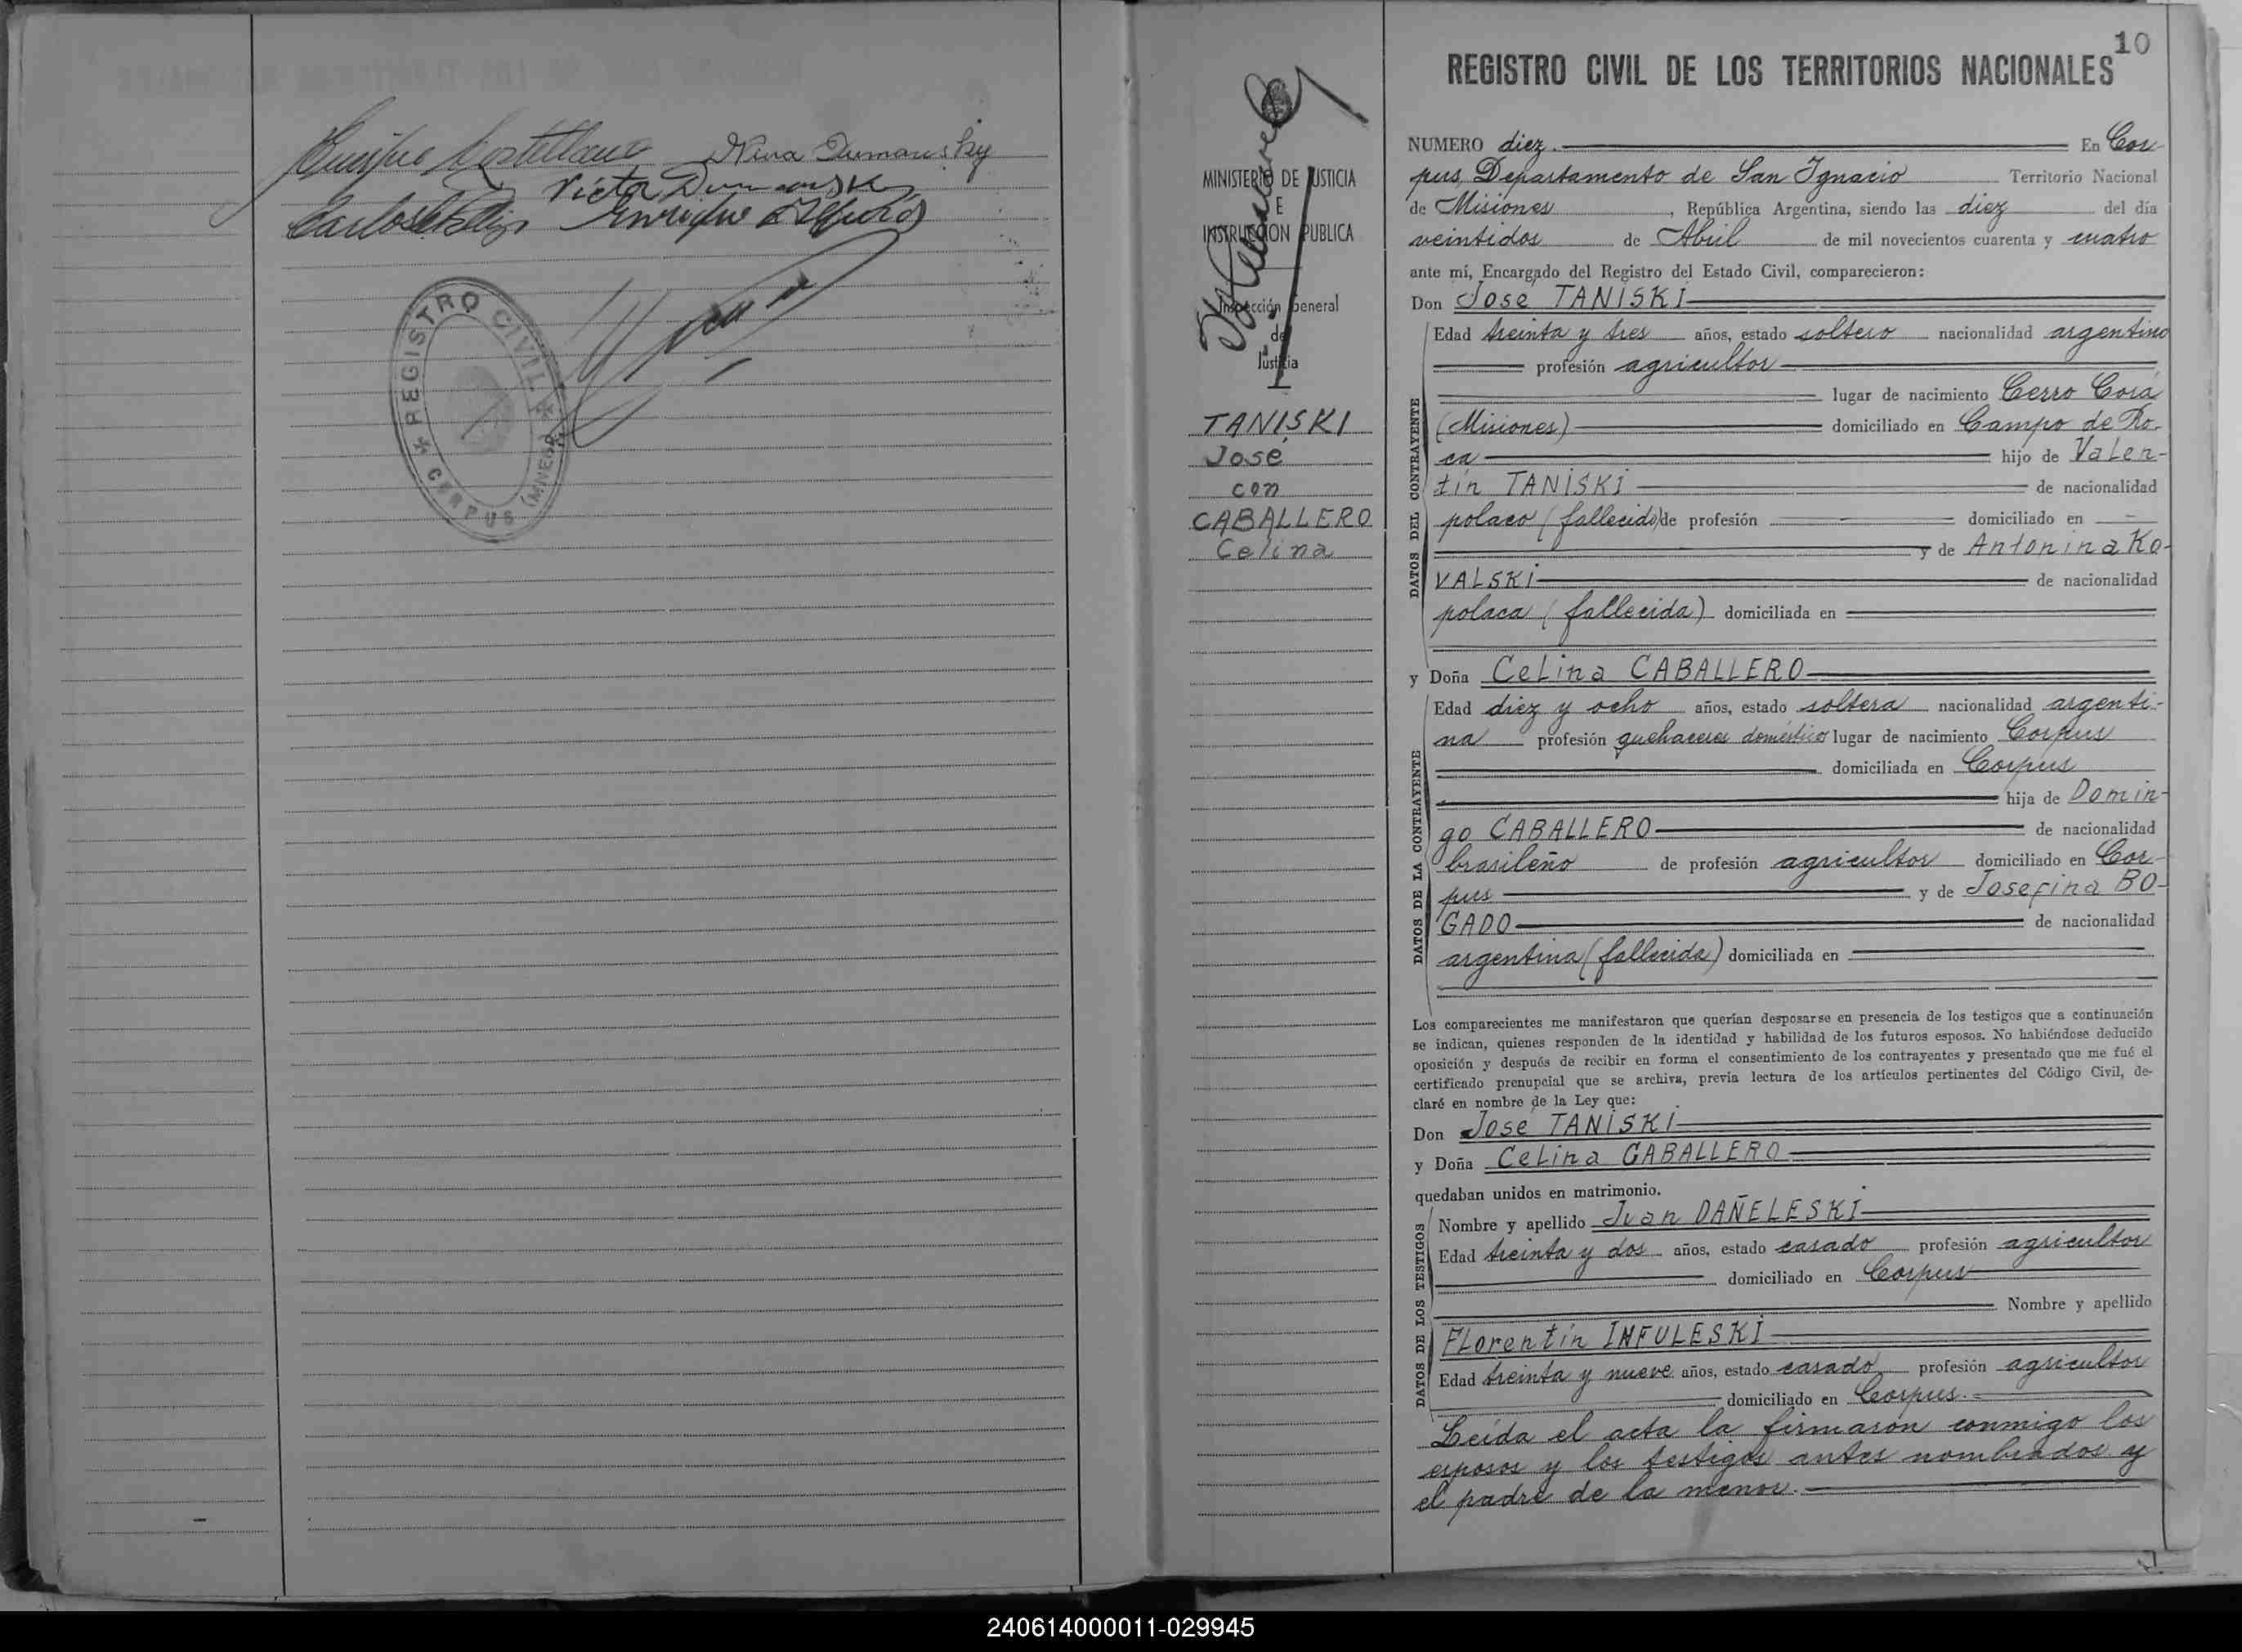 Nina Dumansky
Victor Dumansky
REGISTRO CIVIL
CORPUS (MNES)
10
REGISTRO CIVIL DE LOS TERRITORIOS NACIONALES
MINISTERIO DE JUSTICIA
E
INSTRUCCION PUBLICA
Inspección General
de
Justicia
TANISKI
José
con
CABALLERO
Celina
NUMERO diez. En Cor-
pus, Departamento de San Ignacio Territorio Nacional
de Misiones, República Argentina, siendo las diez del día
veintidos de Abril de mil novecientos cuarenta y cuatro
ante mí, Encargado del Registro del Estado Civil, comparecieron:
Don José TANISKI
Edad treinta y tres años, estado soltero nacionalidad argentino
profesión agricultor
lugar de nacimiento Cerro Corá
(Misiones) domiciliado en Campo de Ro-
ca hijo de Valen-
tín TANISKI de nacionalidad
polaco (fallecido) de profesión - domiciliado en -
y de Antonina KO-
VALSKI de nacionalidad
polaca (fallecida) domiciliada en
DATOS DEL CONTRAYENTE
y Doña Celina CABALLERO
Edad diez y ocho años, estado soltera nacionalidad argenti-
na profesión quehaceres domésticos lugar de nacimiento Corpus
domiciliada en Corpus
hija de Domin-
go CABALLERO de nacionalidad
brasileño de profesión agricultor domiciliado en Cor-
pus y de Josefina BO-
GADO de nacionalidad
argentina (fallecida) domiciliada en
DATOS DE LA CONTRAYENTE
Los comparecientes me manifestaron que querían desposarse en presencia de los testigos que a continuación
se indican, quienes responden de la identidad y habilidad de los futuros esposos. No habiéndose deducido
oposición y después de recibir en forma el consentimiento de los contrayentes y presentado que me fué el
certificado prenupcial que se archiva, previa lectura de los artículos pertinentes del Código Civil, de-
claré en nombre de la Ley que:
Don José TANISKI
y Doña Celina CABALLERO
quedaban unidos en matrimonio.
Nombre y apellido Juan DAÑELESKI
Edad treinta y dos años, estado casado profesión agricultor
domiciliado en Corpus
Nombre y apellido
Florentín INFULESKI
Edad treinta y nueve años, estado casado profesión agricultor
domiciliado en Corpus.
DATOS DE LOS TESTIGOS
Leída el acta la firmaron conmigo los
esposos y los testigos antes nombrados y
el padre de la menor.
240614000011-029945